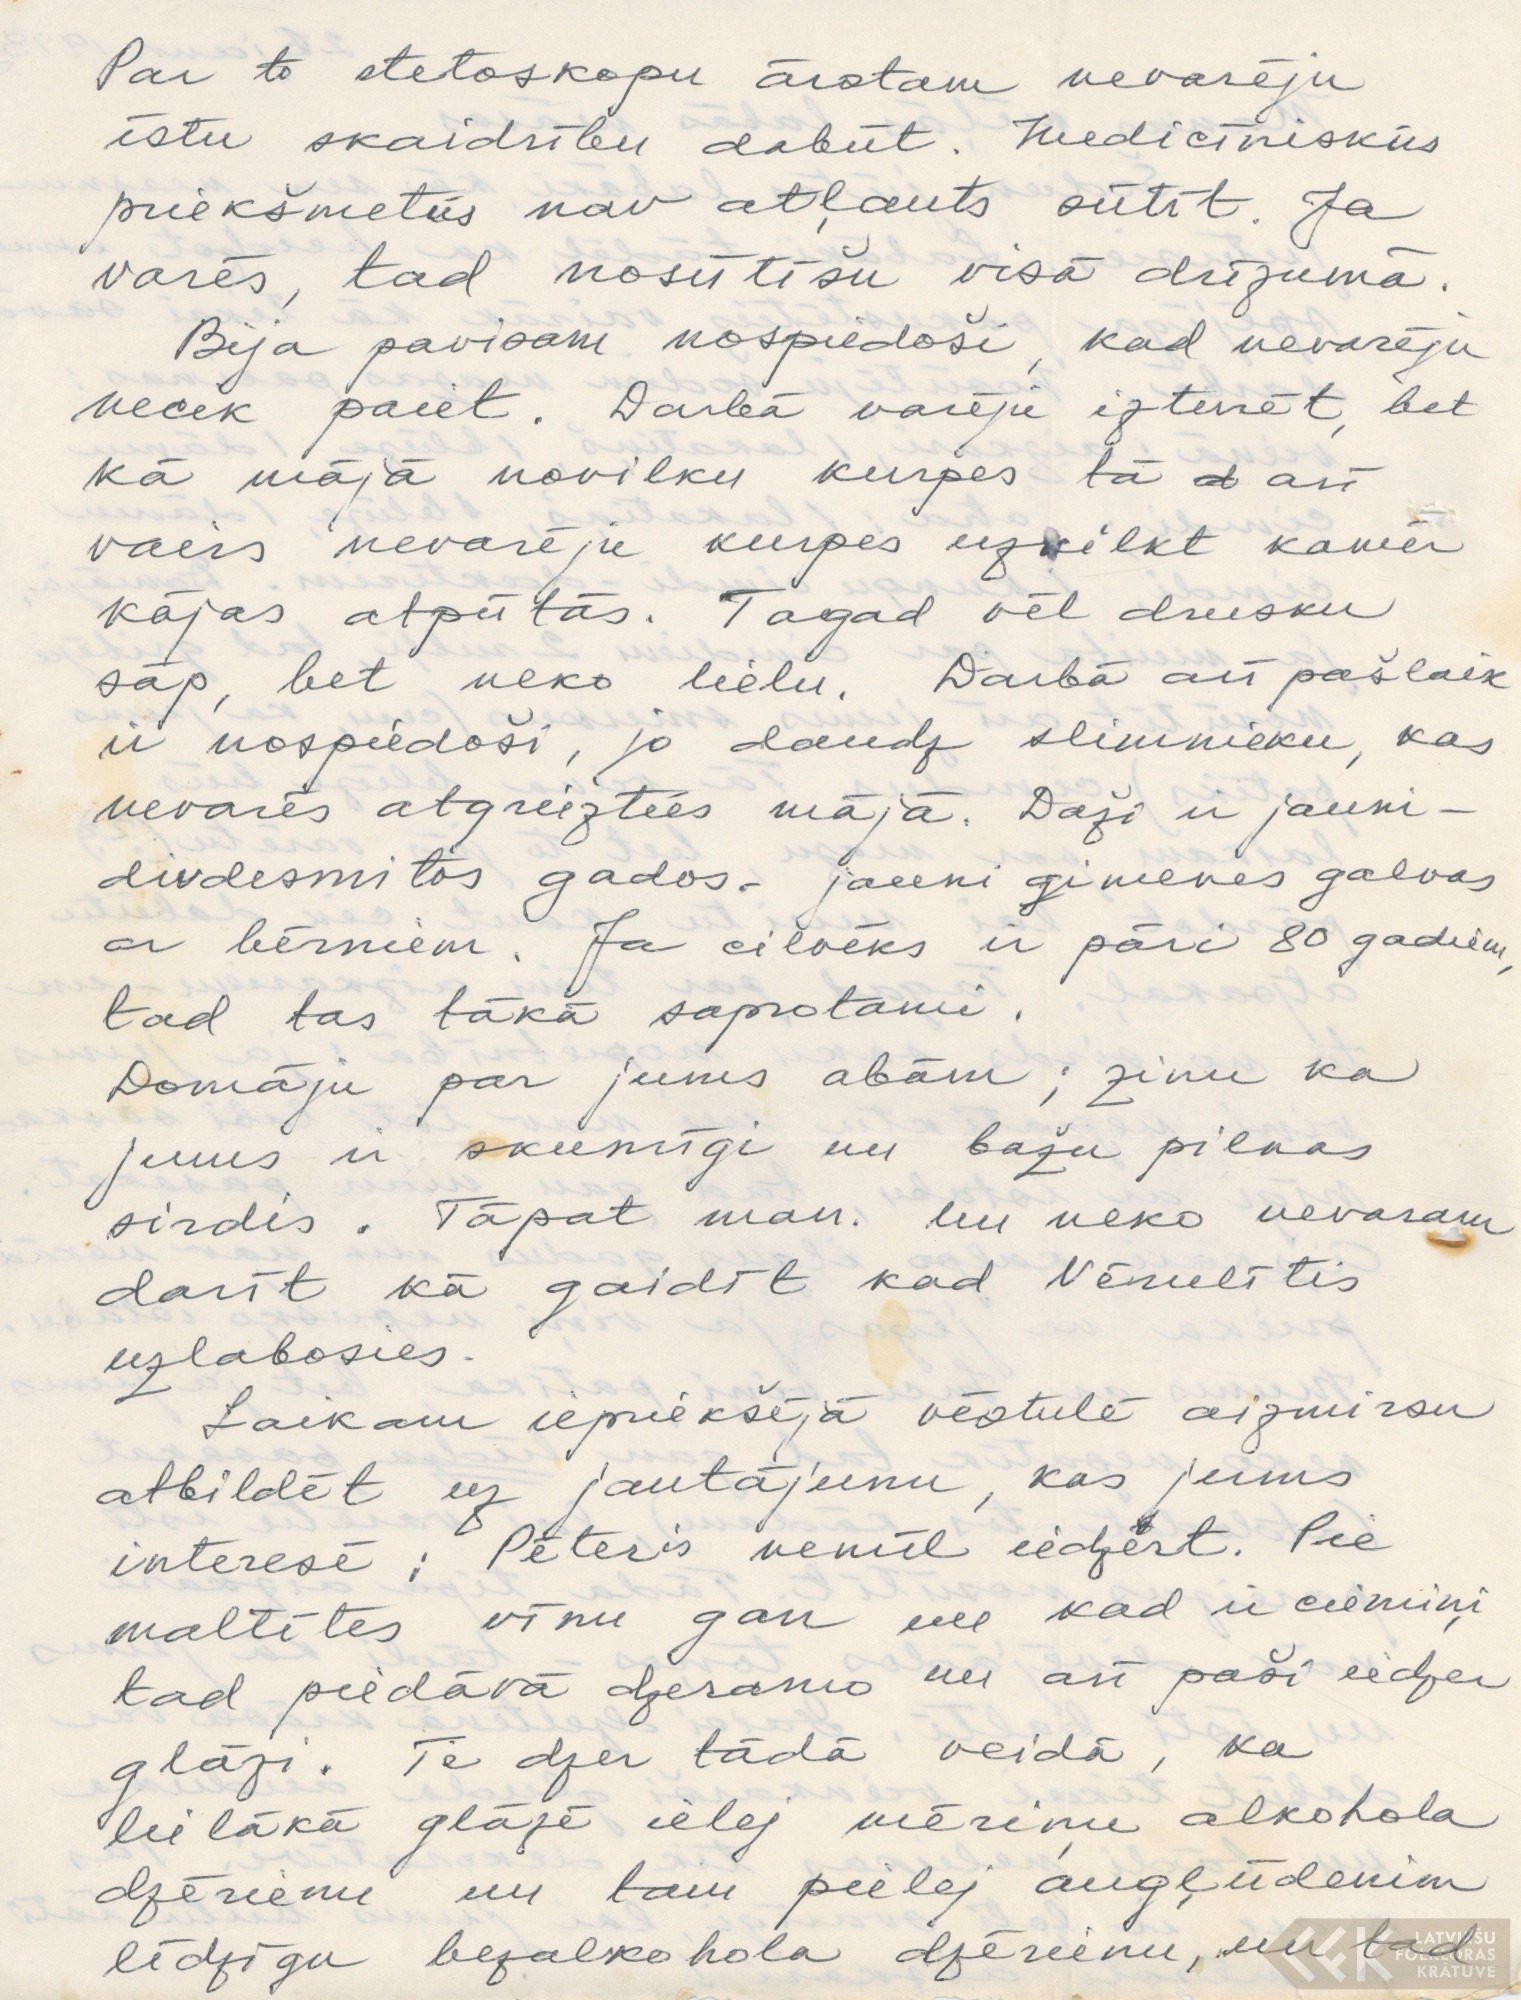 Par to stetoskopu ārstam nevarēju
īstu skaidrību dabūt. Medicīniskus
priekšmetus nav atļauts sūtīt. Ja
varēs, tad nosūtīšu visā drīzumā.
Bija pavisam nospiedoši, kad nevarēju
necik paiet. Darbā varēju izturēt, bet
kā mājā novilku kurpes tā arī
vairs nevarēju kurpes uzvilkt kamēr
kājas atpūtās. Tagad vēl drusku
sāp, bet neko lielu. Darbā arī pašlaik
ir nospiedoši, jo daudz slimnieku, kas
nevarēs atgriezties mājā. Daži ir jauni –
divdesmitos gados – jauni ģimenes galvas
ar bērniem. Ja cilvēks ir pāri 80 gadiem,
tad tas tākā saprotami.
Domāju par jums abām; zinu ka
jums ir skumīgi un bažu pilnas
sirdis. Tāpat man. Un neko nevaram
darīt kā gaidīt kad Vēsulītis
uzlabosies.
Laikam iepriekšējā vēstulē aizmirsu
atbildēt uz jautājumu, kas jums
interesē; Pēteris nemīl iedzērt. Pie
maltītes vīnu gan un kad ir ciemiņi
tad piedāvā dzeramo un arī paši iedzer
glāzi. Te dzer tādā veidā, ka
lielākā glāzē ielej mēriņu alkohola
dzērienu un tam pielej augļūdenim
līdzīgu bezalkohola dzērienu, un tad
LATVIEŠU
FOLKLORAS
KRĀTUVE